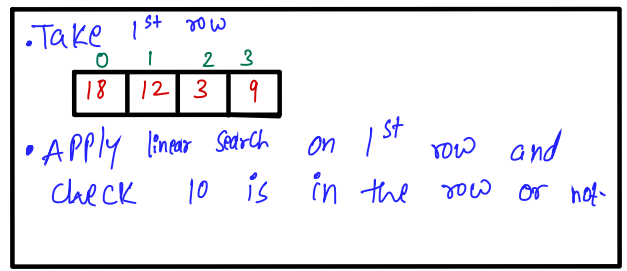 • Take 1st row
0 1 2 3
18 12 3 9
• APPly linear search on 1st row and
check 10 is in the row or not.